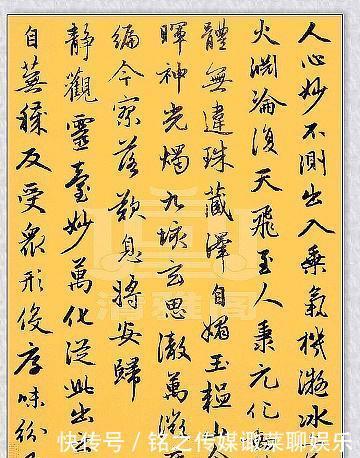 人心妙不測出入乘氣機凝冰
火淵淪復天飛至人秉元化
體無違珠藏澤自媚玉韞山
暉神光燭九垓玄思徹萬微
編今寥落歎息將安歸
靜觀靈臺妙萬化從此出
自蕪穢反受衆形役厚味紛
快传号 / 铭之传媒谳菜聊娱乐